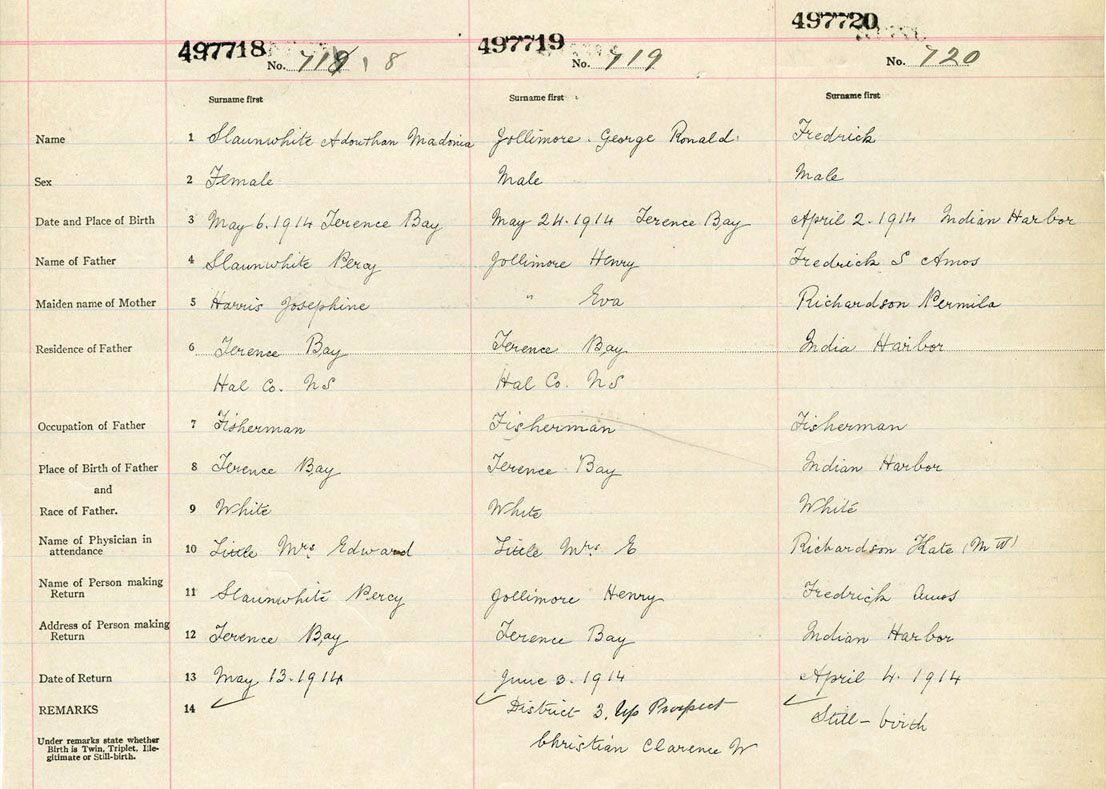 497718 497719 497720
No. 718 8 No. 719 No. 720
Surname first Surname first Surname first
Name 1 Slaunwhite Madonia Jollimore. George Ronald Fredrick
Sex 2 Female Male Male
Date and Place of Birth 3 May 6. 1914 Terence Bay May 24. 1914 Terence Bay April 2. 1914 Indian Harbor
Name of Father 4 Slaunwhite Percy Jollimore Henry Fredrick S Amos
Maiden name of Mother 5 Harris Josephine " Eva Richardson Permila
Residence of Father 6 Terence Bay Terence Bay India Harbor
Hal Co. NS Hal Co. NS
Occupation of Father 7 Fisherman Fisherman Fisherman
Place of Birth of Father 8 Terence Bay Terence Bay Indian Harbor
and
Race of Father. 9 White White White
Name of Physician in
attendance 10 Little Mrs Edward Little Mrs E Richardson Kate (M W)
Name of Person making
Return 11 Slaunwhite Percy Jollimore Henry Fredrick Amos
Address of Person making
Return 12 Terence Bay Terence Bay Indian Harbor
Date of Return 13 May 13. 1914 June 3. 1914 April 4. 1914
REMARKS 14 District 3, Up Prospect Still-birth
Under remarks state whether
Birth is Twin, Triplet, Ille-
gitimate or Still-birth. Christian Clarence W